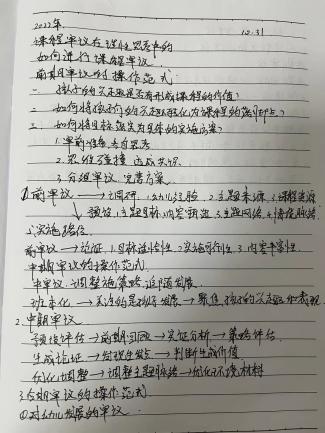 2022年 12.31
课程审议在理性思考中的
如何进行课程审议
前期审议的操作范式:
一、孩子的兴趣是否有形成课程的价值?
二、如何将孩子们的兴趣转化为课程的
三、如何将目标落实为具体的实施方案?
1.审前准备 各自思考
2.思维碰撞 达成共识
3.分组审议 完善方案
①前审议 → 调研:1.幼儿经验 2.主题来源 3.课程资源
预设:1.主题目标、内容 2.主题网络 3.情境脉络
实施路径
前审议 → 论证:1.目标适宜性 2.实施可行性 3.内容丰富性
中期审议的操作范式
中审议:调整策略 追随发展
班本化 → 关注的是孩子发展 → 聚焦:孩子的兴趣和表现
2.中期审议
预设评估 → 前期回顾 → 实证分析 → 策略评估
生成论证 → 发现生发点 → 判断生成价值
优化调整 → 调整主题脉络 → 优化环境材料
3.后期审议的操作范式
①对幼儿发展的审议